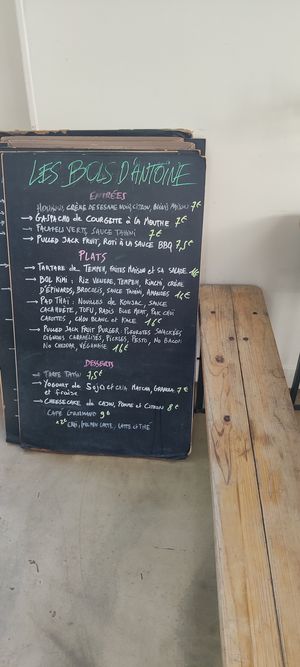 LES BOLS D'ANTOINE
ENTRÉES
HOUMOUS, CRÈME DE SESAME NOIR, CITRON, MAISON 7€
→ GASPACHO DE COURGETTE À LA MENTHE 7€
→ FALAFELS VERTS, SAUCE TAHINI 7€
→ PULLED JACK FRUIT, ROTI À LA SAUCE BBQ 7,5€
PLATS
→ TARTARE DE TEMPEH, FRITES MAISON ET SA SALADE
→ BOL KIMI : RIZ VENERE, TEMPEH, KIMCHI, CRÈME
D'ÉPINARDS, BROCOLIS, SAUCE TAHINI, AMANDES 16€
→ PAD THAI : NOUILLES DE KONJAC, SAUCE
CACAHUÈTE, TOFU, RADIS BLUE MEAT, PAK CHOI
CAROTTES, CHOU BLANC ET KALE 16€
→ PULLED JACK FRUIT BURGER : PLEUROTES SNACKÉES,
OIGNONS CARAMÉLISÉS, PICKLES, PESTO, NO BACON
NO CHEDDAR, VÉGANAISE 16€
DESSERTS
→ TARTE TATIN 7,5€
→ YOGOURT DE SOJA ET CHIA MATCHA, GRANOLA 7€
ET FRAISE
→ CHEESECAKE DE CAJOU, POMME ET CITRON 8€
CAFÉ GOURMAND 9€
LATTE ET THÉ